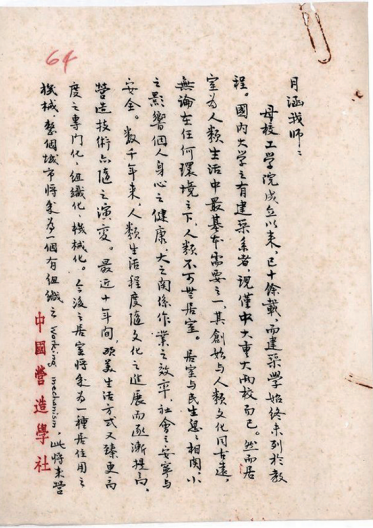 64
月涵我師：
母校工學院成立以来，已十餘載，而建築學始終未列於教
程。國內大學之有建築系者，現僅中大重大兩校而已。然而居
室為人類生活中最基本需要之一，其創始与人類文化同古遠，
無論在任何環境之下，人類不可無居室。居室与民生息息相關，小
之影響個人身心之健康，大之關係作業之效率，社會之安寧与
安全。數千年来，人類生活程度隨文化之進展而逐漸提高，
營造技術亦隨之演變。最近十年間，歐美生活方式又臻更高
度之專門化、組織化、機械化。今後之居室將成為一種居住用之
機械，整個城市將成為一個有組織之 working mechanism，此將来營
中國營造學社